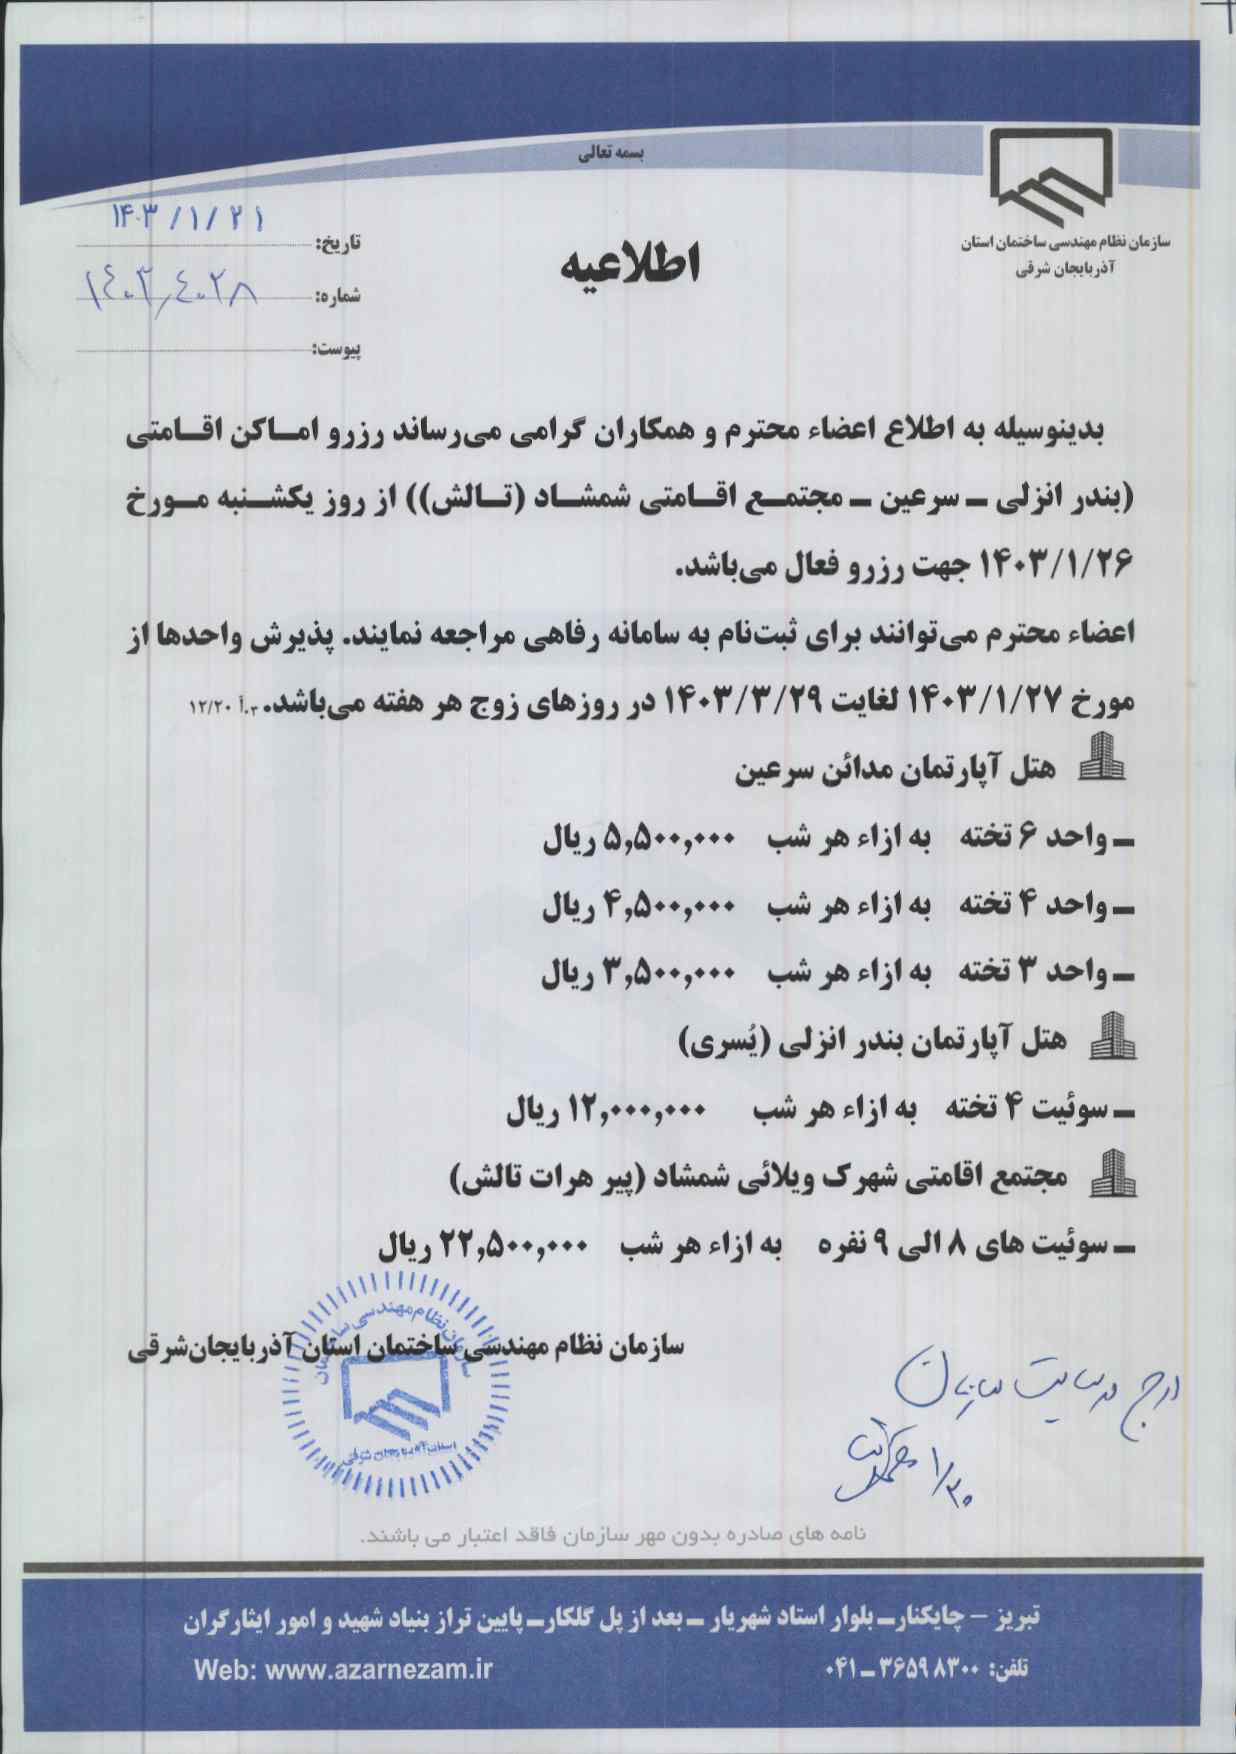 بسمه تعالی
سازمان نظام مهندسی ساختمان استان
آذربایجان شرقی
اطلاعیه
تاریخ: ۱۴۰۳/۱/۲۱
شماره: ۱۴۰۳,۴۰۲۸
پیوست:
بدینوسیله به اطلاع اعضاء محترم و همکاران گرامی می‌رساند رزرو اماکن اقامتی
(بندر انزلی – سرعین – مجتمع اقامتی شمشاد (تالش)) از روز یکشنبه مورخ
۱۴۰۳/۱/۲۶ جهت رزرو فعال می‌باشد.
اعضاء محترم می‌توانند برای ثبت‌نام به سامانه رفاهی مراجعه نمایند. پذیرش واحدها از
مورخ ۱۴۰۳/۱/۲۷ لغایت ۱۴۰۳/۳/۲۹ در روزهای زوج هر هفته می‌باشد. ۱۲/۲۰
هتل آپارتمان مدائن سرعین
– واحد ۶ تخته به ازاء هر شب ۵,۵۰۰,۰۰۰ ریال
– واحد ۴ تخته به ازاء هر شب ۴,۵۰۰,۰۰۰ ریال
– واحد ۳ تخته به ازاء هر شب ۳,۵۰۰,۰۰۰ ریال
هتل آپارتمان بندر انزلی (یُسری)
– سوئیت ۴ تخته به ازاء هر شب ۱۲,۰۰۰,۰۰۰ ریال
مجتمع اقامتی شهرک ویلائی شمشاد (پیر هرات تالش)
– سوئیت های ۸ الی ۹ نفره به ازاء هر شب ۲۲,۵۰۰,۰۰۰ ریال
سازمان نظام مهندسی ساختمان استان آذربایجان‌شرقی
سازمان نظام مهندسی ساختمان
استان آذربایجان شرقی
درج در سایت سازمان
۱/۳۰
نامه های صادره بدون مهر سازمان فاقد اعتبار می باشند.
تبریز – چایکنار– بلوار استاد شهریار – بعد از پل گلکار– پایین تراز بنیاد شهید و امور ایثارگران
تلفن: ۳۶۵۹۸۳۰۰–۰۴۱
Web: www.azarnezam.ir